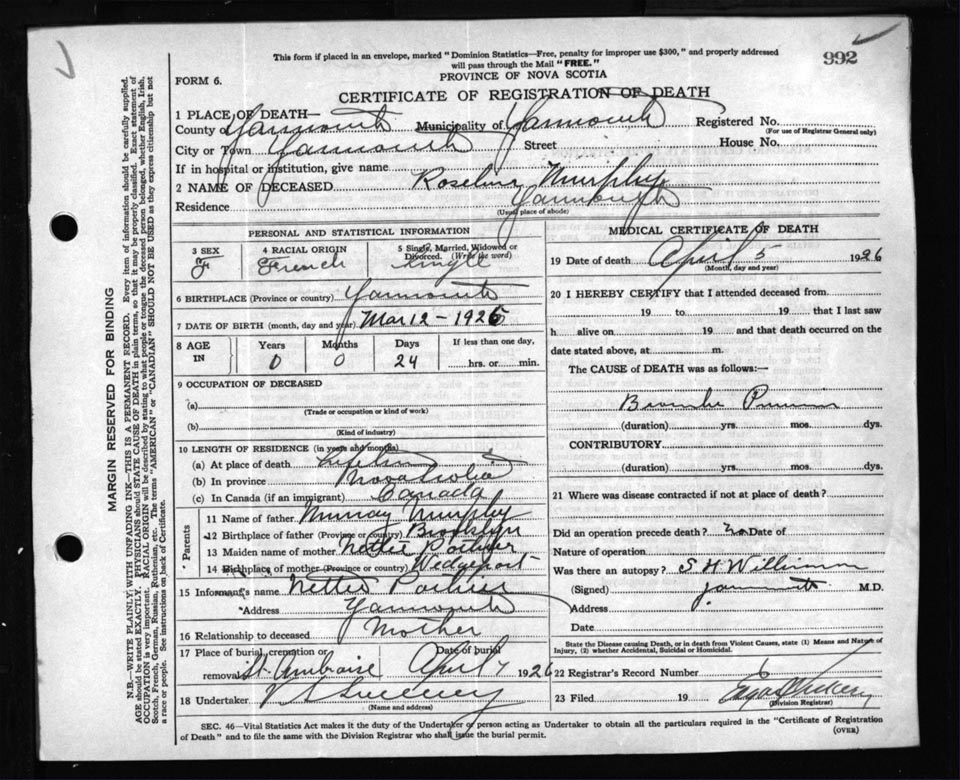 992
This form if placed in an envelope, marked "Dominion Statistics—Free, penalty for improper use $300," and properly addressed
will pass through the Mail "FREE."
PROVINCE OF NOVA SCOTIA
FORM 6.
CERTIFICATE OF REGISTRATION OF DEATH
1 PLACE OF DEATH—
County of Yarmouth Municipality of Yarmouth Registered No.
(For use of Registrar General only)
City or Town Yarmouth Street House No.
If in hospital or institution, give name
2 NAME OF DECEASED Murphy
Residence Yarmouth
(Usual place of abode)
PERSONAL AND STATISTICAL INFORMATION
3 SEX F
4 RACIAL ORIGIN French
5 Single, Married, Widowed or Divorced. (Write the word) Single
6 BIRTHPLACE (Province or country) Yarmouth
7 DATE OF BIRTH (month, day and year) Mar 12 - 1926
8 AGE IN Years Months Days If less than one day,
0 0 24 hrs. or min.
9 OCCUPATION OF DECEASED
(a)
(Trade or occupation or kind of work)
(b)
(Kind of industry)
10 LENGTH OF RESIDENCE (in years and months)
(a) At place of death Lifetime
(b) In province Nova Scotia
(c) In Canada (if an immigrant) Canada
Parents
11 Name of father Murray Murphy
12 Birthplace of father (Province or country) Brooklyn
13 Maiden name of mother Nettie
14 Birthplace of mother (Province or country) Wedgeport
15 Informant's name
Address Yarmouth
16 Relationship to deceased Mother
17 Place of burial, cremation or removal St. Ambroise Date of burial April 7 1926
18 Undertaker V S Sweeney
(Name and address)
MEDICAL CERTIFICATE OF DEATH
19 Date of death April 5 1926
(Month, day and year)
20 I HEREBY CERTIFY that I attended deceased from
19 to 19 that I last saw
h alive on 19 and that death occurred on the
date stated above, at m.
The CAUSE of DEATH was as follows:—
(duration) yrs. mos. dys.
CONTRIBUTORY
(duration) yrs. mos. dys.
21 Where was disease contracted if not at place of death?
Did an operation precede death? no Date of
Nature of operation
Was there an autopsy?
(Signed) M.D.
Address
Date
State the Disease causing Death, or in death from Violent Causes, state (1) Means and Nature of
Injury, (2) whether Accidental, Suicidal or Homicidal.
22 Registrar's Record Number 6
23 Filed 19
(Division Registrar)
SEC. 46—Vital Statistics Act makes it the duty of the Undertaker or person acting as Undertaker to obtain all the particulars required in the "Certificate of Registration
of Death" and to file the same with the Division Registrar who shall issue the burial permit.
(OVER)
MARGIN RESERVED FOR BINDING
N.B.—WRITE PLAINLY, WITH UNFADING INK—THIS IS A PERMANENT RECORD. Every item of information should be carefully supplied.
AGE should be stated EXACTLY. PHYSICIANS should STATE CAUSE OF DEATH in plain terms, so that it may be properly classified. Exact statement of
OCCUPATION is very important. RACIAL ORIGIN will be described by stating to what people or tongue the deceased person belonged, whether English, Irish,
Scotch, French, German, Russian, Ruthenian, etc. The terms "AMERICAN" or "CANADIAN" SHOULD NOT BE USED as they express citizenship but not
a race or people. See instructions on back of Certificate.